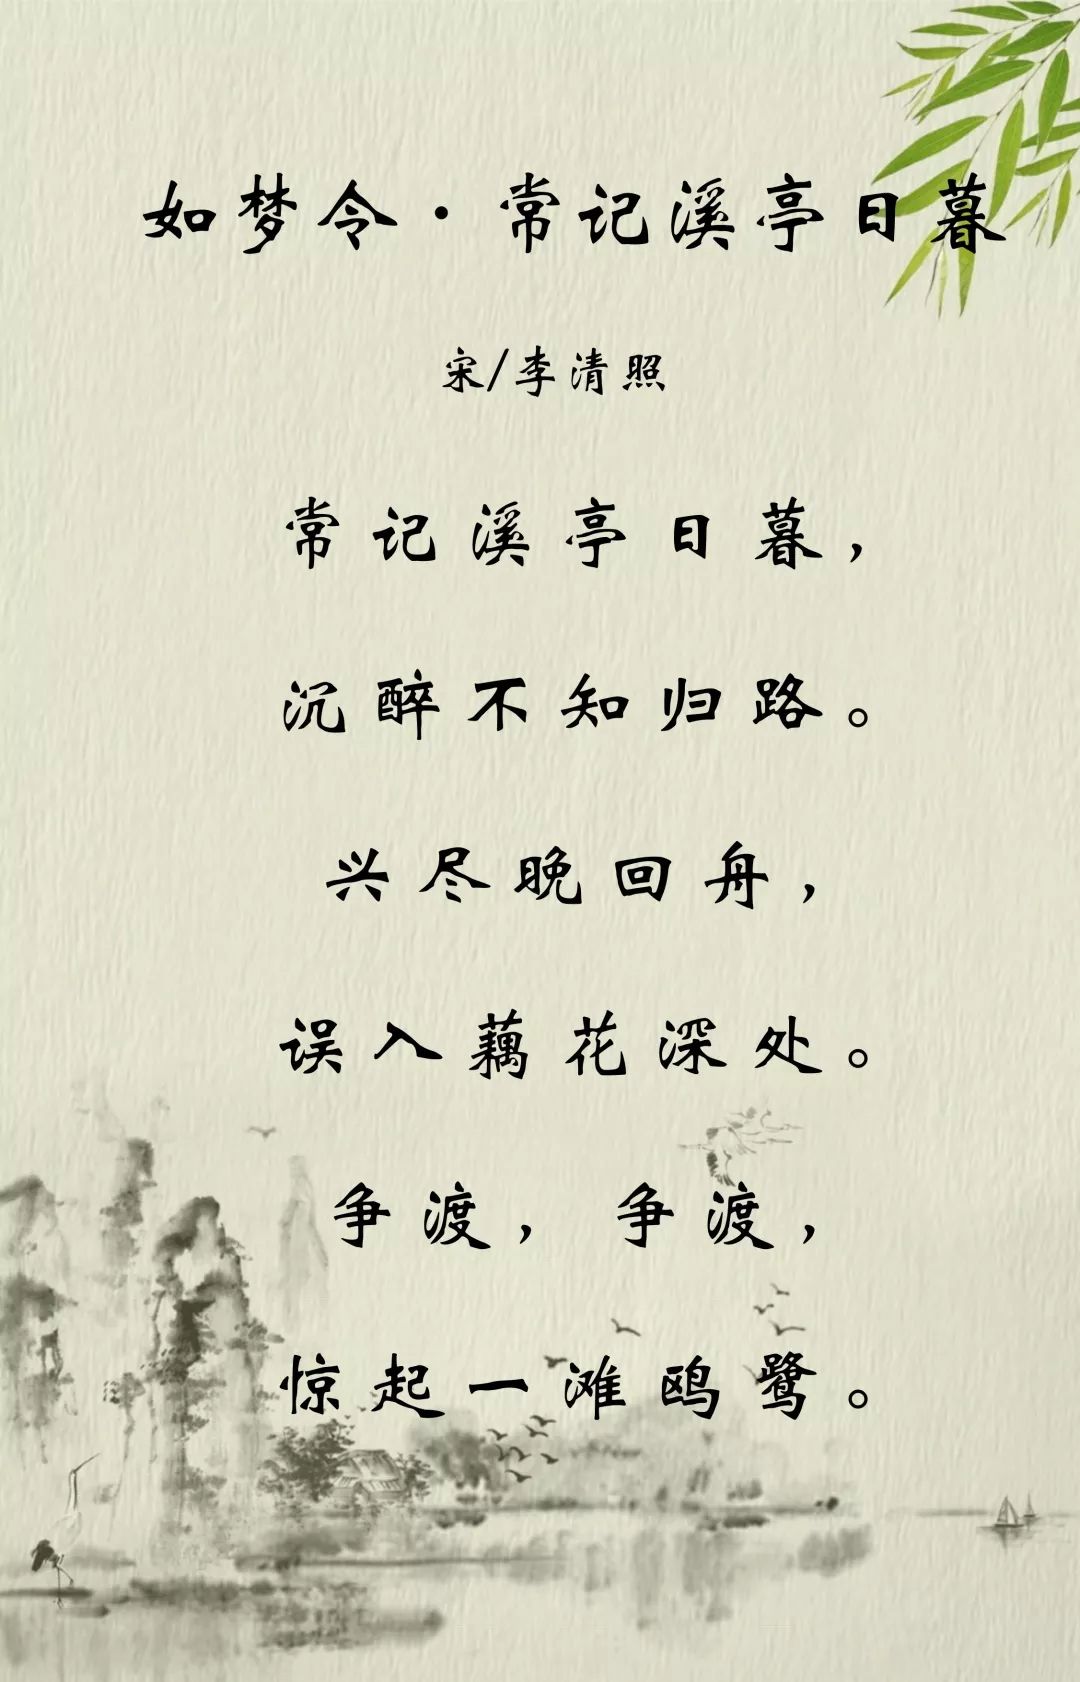 如梦令·常记溪亭日暮
宋/李清照
常记溪亭日暮，
沉醉不知归路。
兴尽晚回舟，
误入藕花深处。
争渡，争渡，
惊起一滩鸥鹭。